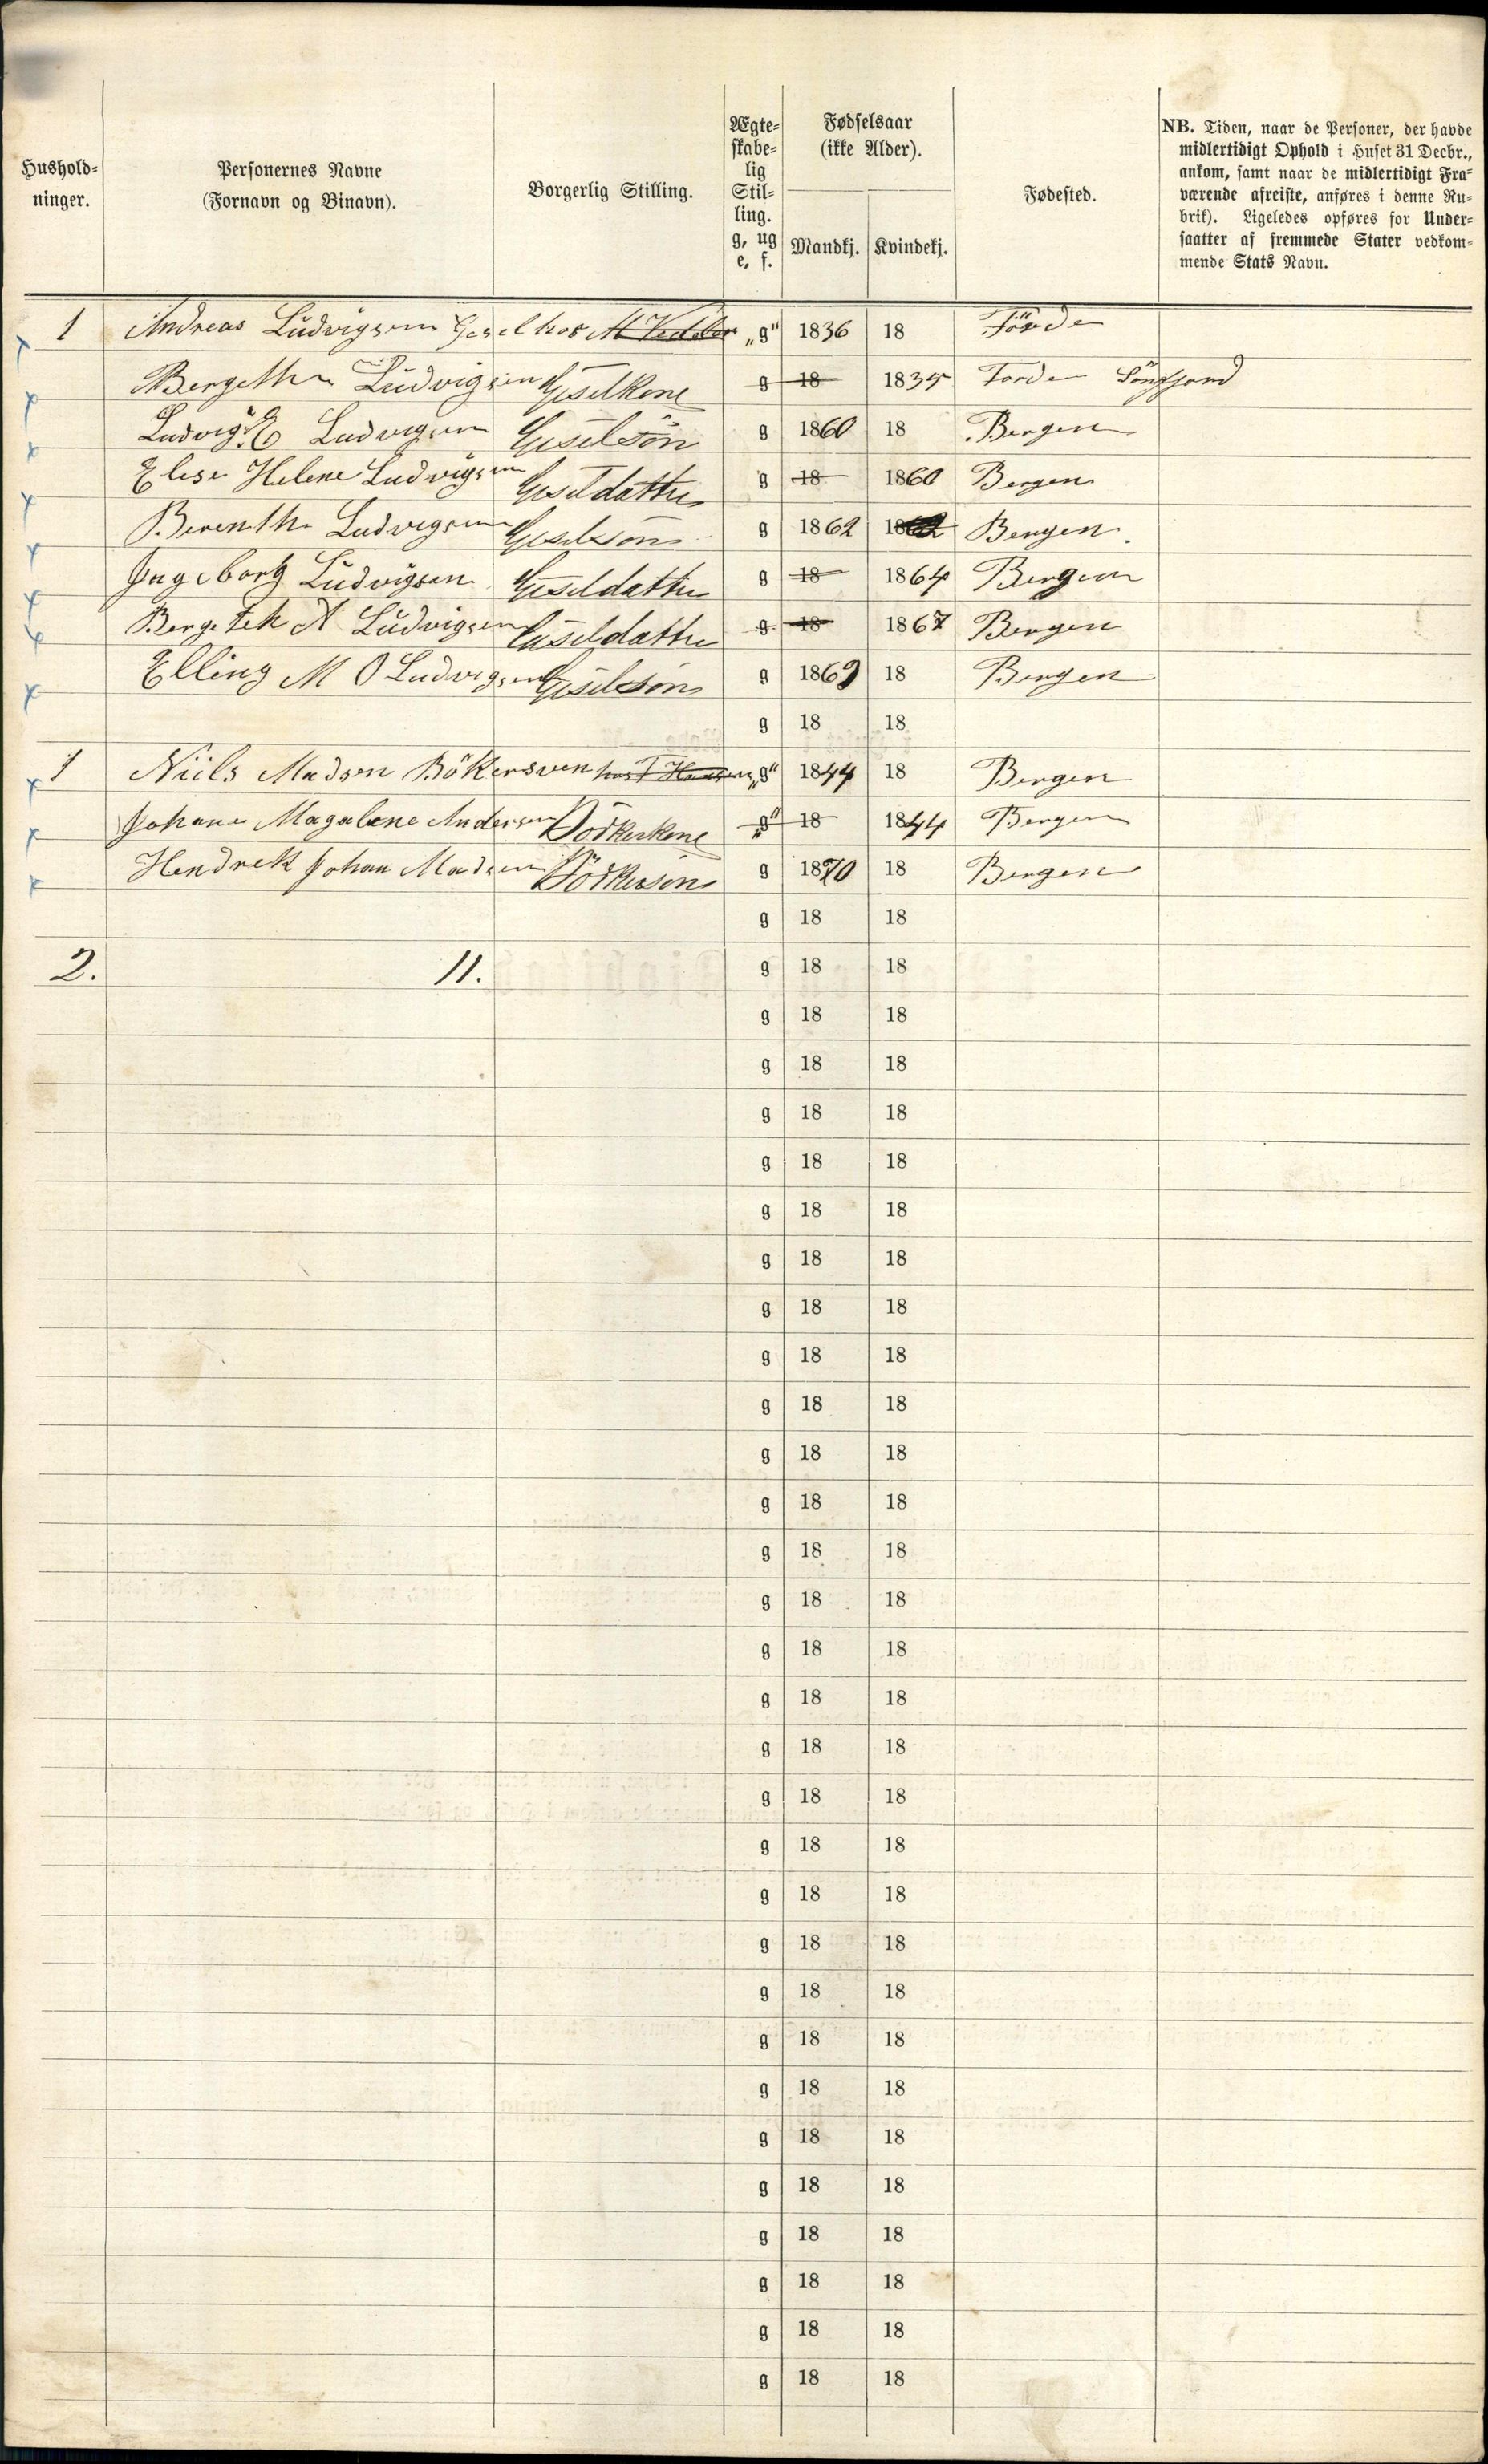 Hushold-
ninger.
Personernes Navne
(Fornavn og Binavn).
Borgerlig Stilling.
Ægte-
skabe-
lig
Stil-
ling.
g, ug
e, f.
Fødselsaar
(ikke Alder).
Mandkj.
Kvindekj.
Fødested.
NB. Tiden, naar de Personer, der havde
midlertidigt Ophold i Huset 31 Decbr.,
ankom, samt naar de midlertidigt Fra-
værende afreiste, anføres i denne Ru-
brik). Ligeledes opføres for Under-
saatter af fremmede Stater vedkom-
mende Stats Navn.
1 Andreas Ludvigsen Gesel hos "g" 1836 18 Förde
Bergethe Ludvigsen Geselkone g 18 1835 Forde Söndfjord
Ludvig E Ludvigsen Geselsön g 1860 18 Bergen
Elese Helene Ludvigsen Geseldatter g 18 1860 Bergen
Berenth Ludvigsen Geselsön g 1862 1862 Bergen.
Ingeborg Ludvigsen Geseldatter g 18 1864 Bergen
Bergeteh A Ludvigsen Geseldatter g 18 1867 Bergen
Elling M O Ludvigsen Geselsön g 1869 18 Bergen
g 18 18
1 Niils Madsen Bökersven hos "g" 1844 18 Bergen
Johane Magalene Andersen Bödkerkone "g" 18 1844 Bergen
Hendrek Johan Madsen Bödkersön g 1870 18 Bergen
g 18 18
2. 11. g 18 18
g 18 18
g 18 18
g 18 18
g 18 18
g 18 18
g 18 18
g 18 18
g 18 18
g 18 18
g 18 18
g 18 18
g 18 18
g 18 18
g 18 18
g 18 18
g 18 18
g 18 18
g 18 18
g 18 18
g 18 18
g 18 18
g 18 18
g 18 18
g 18 18
g 18 18
g 18 18
g 18 18
g 18 18
g 18 18